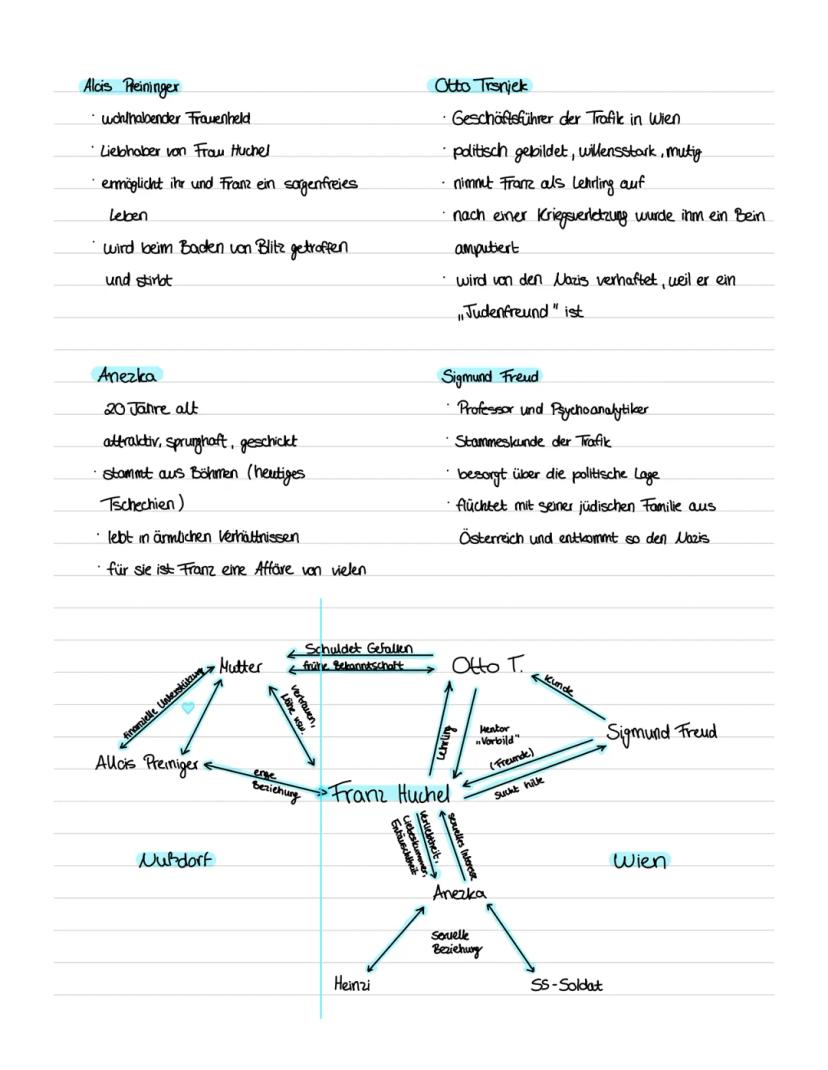 Alois Preininger
· wohlhabender Frauenheld
· Liebhaber von Frau Huchel
· ermöglicht ihr und Franz ein sorgenfreies
Leben
· wird beim Baden von Blitz getroffen
und stirbt
Otto Trsnjek
· Geschäftsführer der Trafik in Wien
· politisch gebildet, willensstark, mutig
· nimmt Franz als Lehrling auf
· nach einer Kriegsverletzung wurde ihm ein Bein
amputiert
· wird von den Nazis verhaftet, weil er ein
„Judenfreund" ist
Anezka
20 Jahre alt
attraktiv, sprunghaft, geschickt
· stammt aus Böhmen (heutiges
Tschechien)
· lebt in ärmlichen Verhältnissen
· für sie ist Franz eine Affäre von vielen
Sigmund Freud
· Professor und Psychoanalytiker
· Stammeskunde der Trafik
· besorgt über die politische Lage
· flüchtet mit seiner jüdischen Familie aus
Österreich und entkommt so den Nazis
Schuldet Gefallen
Mutter
frühe Bekanntschaft
Otto T.
Kunde
finanzielle Unterstützung
Vertrauen,
Liebe usw.
Lehrling
Mentor
„Vorbild"
Sigmund Freud
(Freunde)
Allois Preiniger
enge
Beziehung
Franz Huchel
sucht hilfe
Verliebtheit,
Liebeskummer,
Enttäuschtheit
sexuelles Interesse
Nußdorf
Wien
Anezka
Sexuelle
Beziehung
Heinzi
SS-Soldat